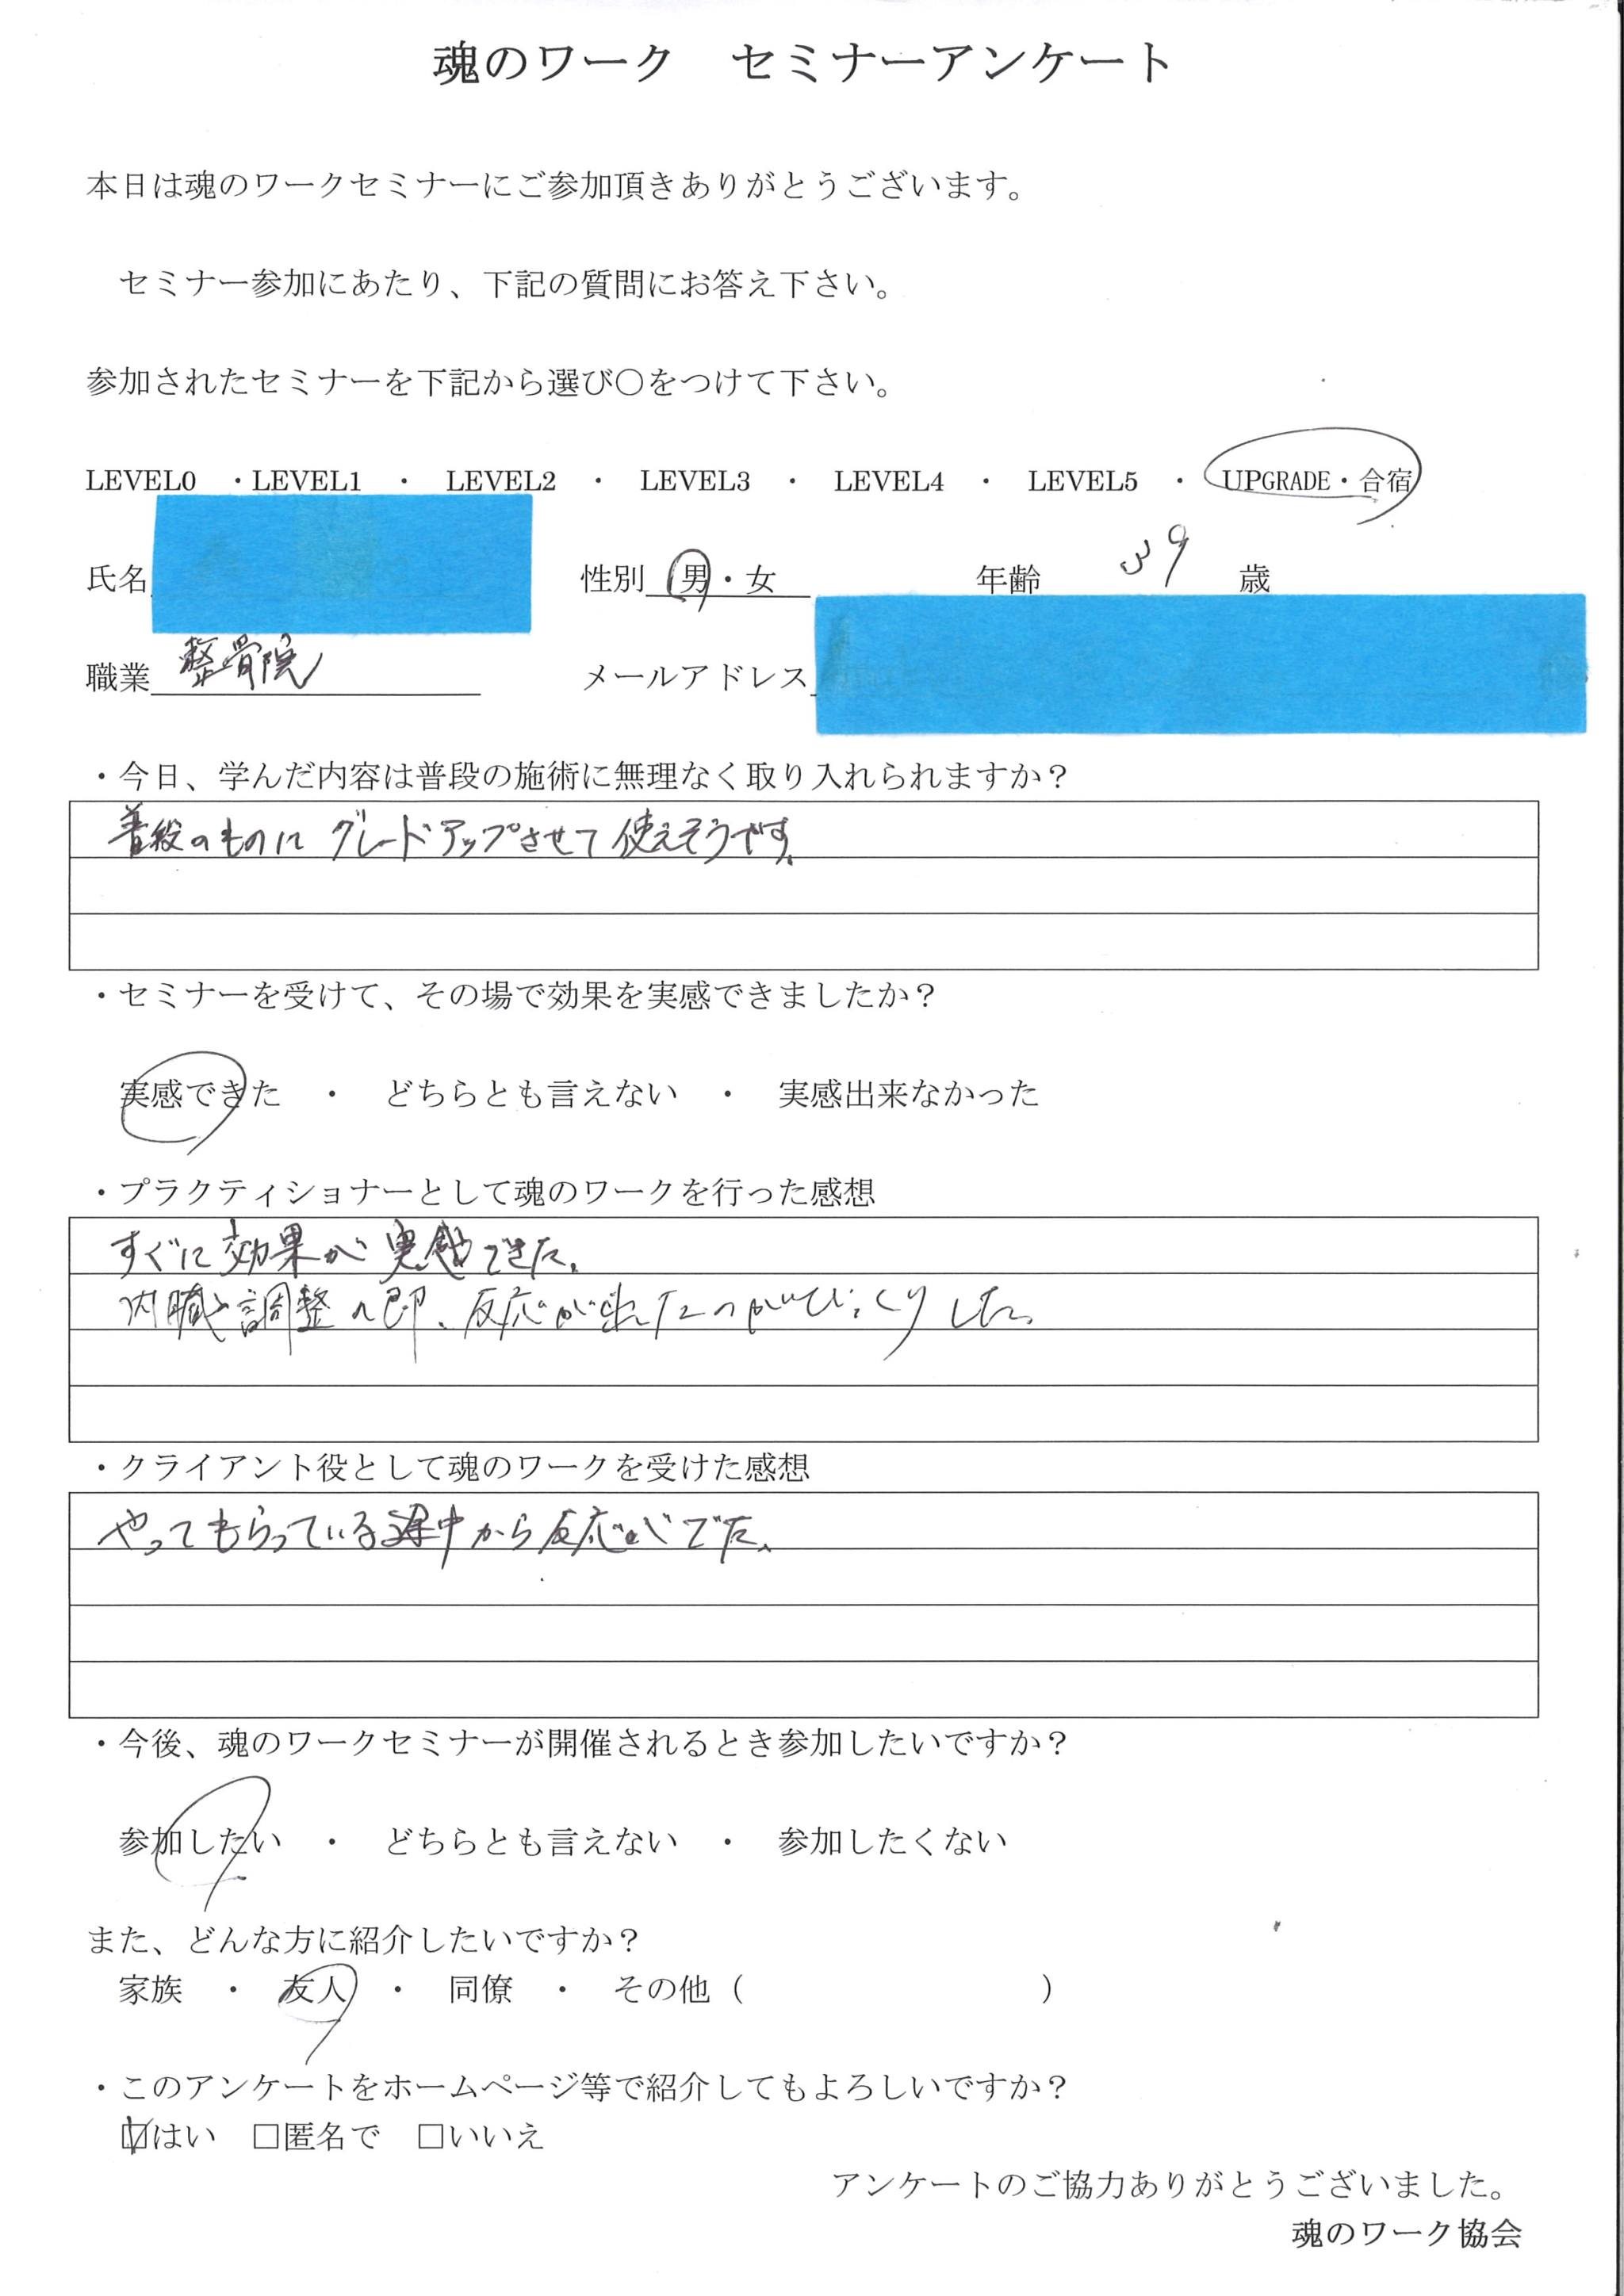 魂のワーク　セミナーアンケート
本日は魂のワークセミナーにご参加頂きありがとうございます。
セミナー参加にあたり、下記の質問にお答え下さい。
参加されたセミナーを下記から選び〇をつけて下さい。
LEVEL0 ・LEVEL1 ・ LEVEL2 ・ LEVEL3 ・ LEVEL4 ・ LEVEL5 ・ UPGRADE・合宿
氏名 性別 男・女 年齢 39 歳
職業 整骨院 メールアドレス
・今日、学んだ内容は普段の施術に無理なく取り入れられますか？
普段のものに グレードアップさせて 使えそうです。
・セミナーを受けて、その場で効果を実感できましたか？
実感できた ・ どちらとも言えない ・ 実感出来なかった
・プラクティショナーとして魂のワークを行った感想
すぐに効果が実感できた。
内臓の調整の即、反応が出たのがびっくりした。
・クライアント役として魂のワークを受けた感想
やってもらっている途中から反応がでた。
・今後、魂のワークセミナーが開催されるとき参加したいですか？
参加したい ・ どちらとも言えない ・ 参加したくない
また、どんな方に紹介したいですか？
家族 ・ 友人 ・ 同僚 ・ その他（ ）
・このアンケートをホームページ等で紹介してもよろしいですか？
☑はい □匿名で □いいえ
アンケートのご協力ありがとうございました。
魂のワーク協会